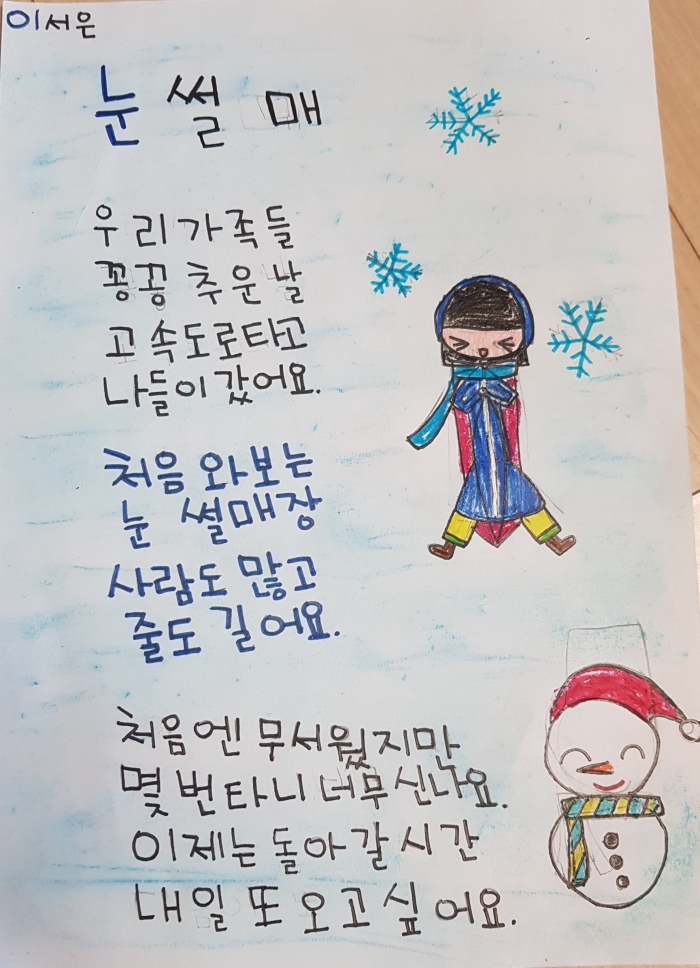 이서은
눈 썰 매
우리가족들
꽁꽁 추운날
고속도로타고
나들이 갔어요.
처음 와보는
눈 썰매장
사람도 많고
줄도 길어요.
처음엔 무서웠지만
몇 번 타니 너무 신나요.
이제는 돌아갈 시간
내일 또 오고 싶어요.